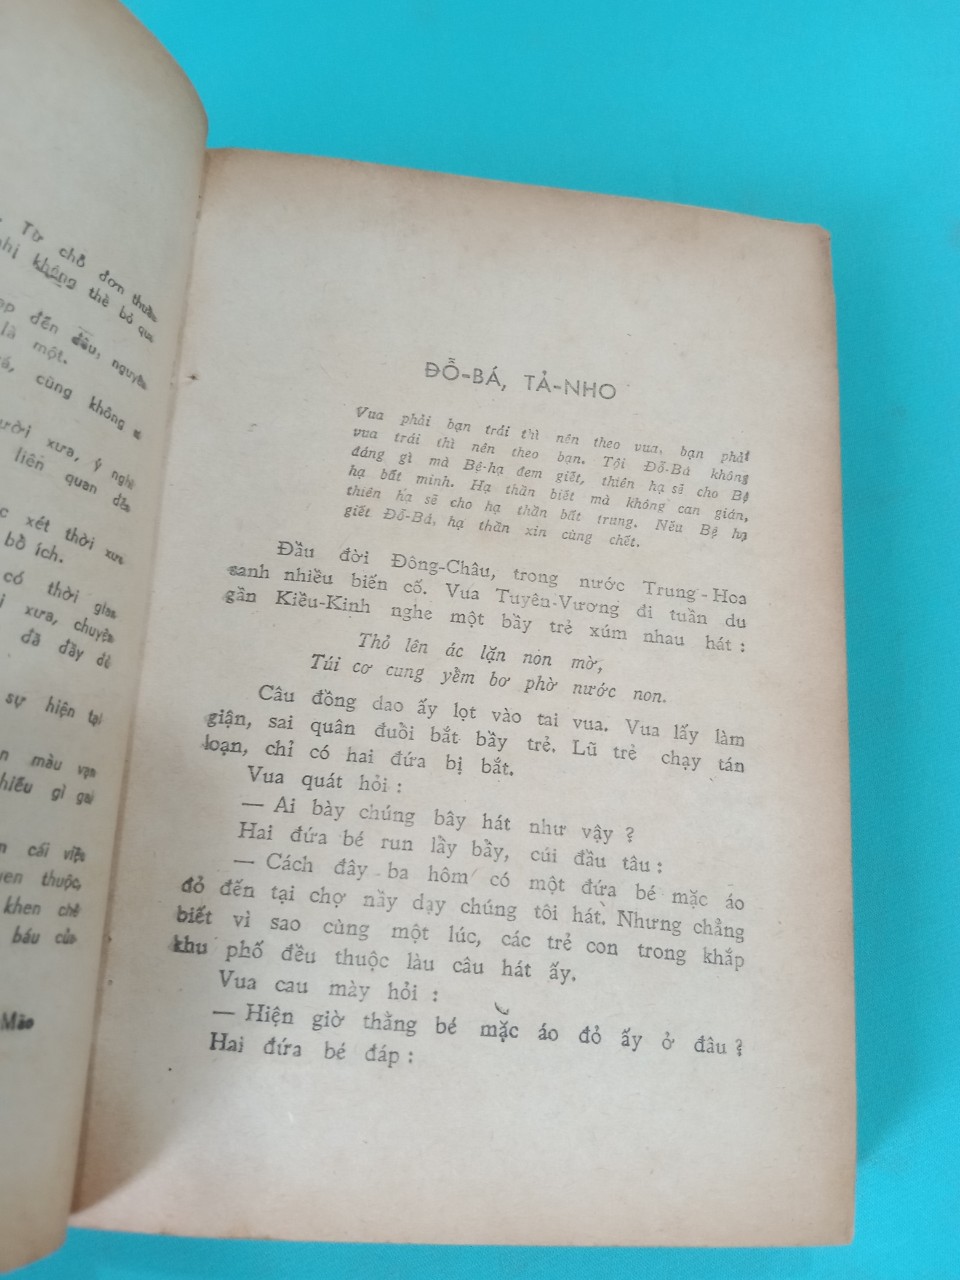 Từ chỗ đơn thuần
không thể bỏ qua
đến đâu, nguyên
là một.
cũng không
xưa, ý nghĩ
liên quan đến
xét thời xưa
bổ ích.
có thời gian
xưa, chuyện
đã đầy đủ
sự hiện tại
màu vẹn
gì gai
cái việc
thuộc,
khen chê
báu của
Mão
ĐỖ-BÁ, TẢ-NHO
Vua phải bạn trái thì nên theo vua, bạn phải
vua trái thì nên theo bạn. Tội Đỗ-Bá không
đáng gì mà Bệ-hạ đem giết, thiên hạ sẽ cho Bệ
hạ bất minh. Hạ thần biết mà không can gián,
thiên hạ sẽ cho hạ thần bất trung. Nếu Bệ hạ
giết Đỗ-Bá, hạ thần xin cùng chết.
Đầu đời Đông-Châu, trong nước Trung-Hoa
sanh nhiều biến cố. Vua Tuyên-Vương đi tuần du
gần Kiều-Kinh nghe một bầy trẻ xúm nhau hát :
Thỏ lên ác lặn non mờ,
Túi cơ cung yểm bơ phờ nước non.
Câu đồng dao ấy lọt vào tai vua. Vua lấy làm
giận, sai quân đuổi bắt bầy trẻ. Lũ trẻ chạy tán
loạn, chỉ có hai đứa bị bắt.
Vua quát hỏi :
— Ai bày chúng bây hát như vậy ?
Hai đứa bé run lầy bầy, cúi đầu tâu :
— Cách đây ba hôm có một đứa bé mặc áo
đỏ đến tại chợ nầy dạy chúng tôi hát. Nhưng chẳng
biết vì sao cùng một lúc, các trẻ con trong khắp
khu phố đều thuộc làu câu hát ấy.
Vua cau mày hỏi :
— Hiện giờ thằng bé mặc áo đỏ ấy ở đâu ?
Hai đứa bé đáp :